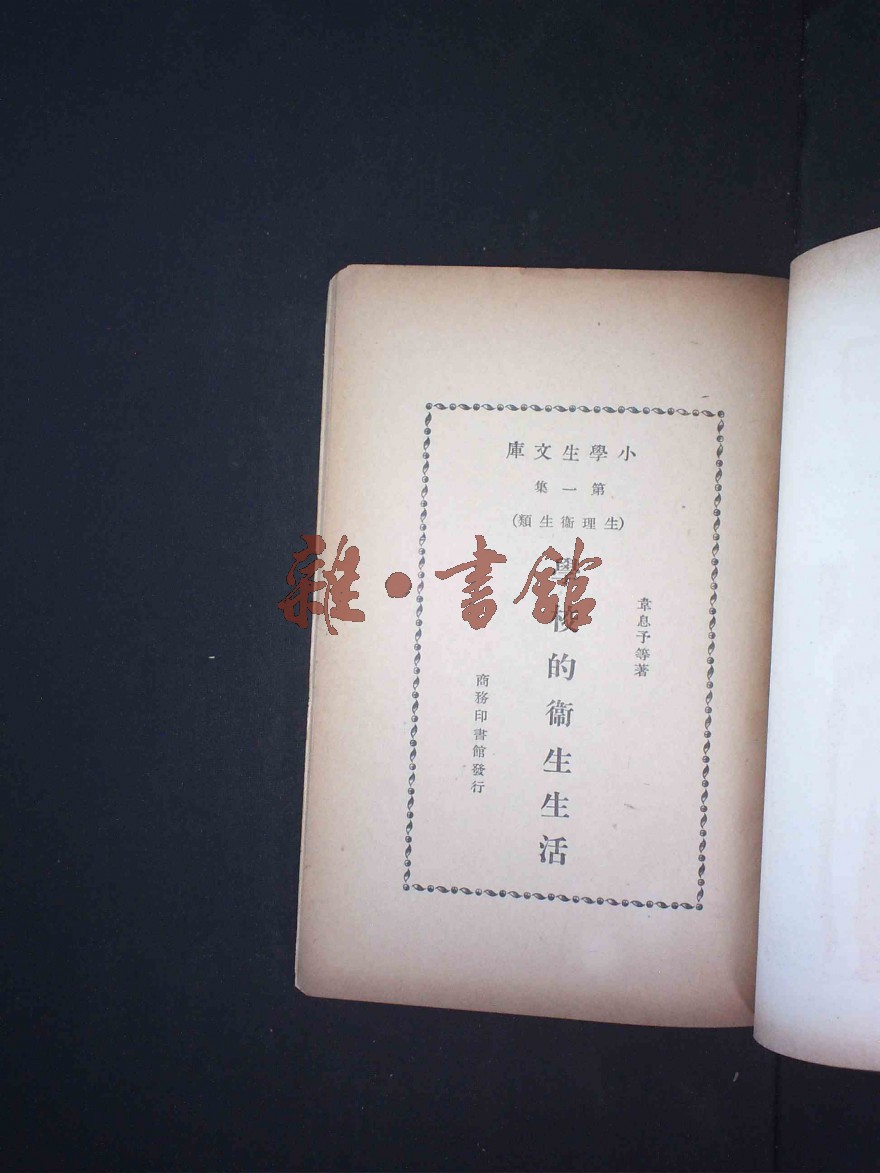 小學生文庫
第一集
(生理衞生類)
韋息予等著
學校的衞生生活
商務印書館發行
雜•書館